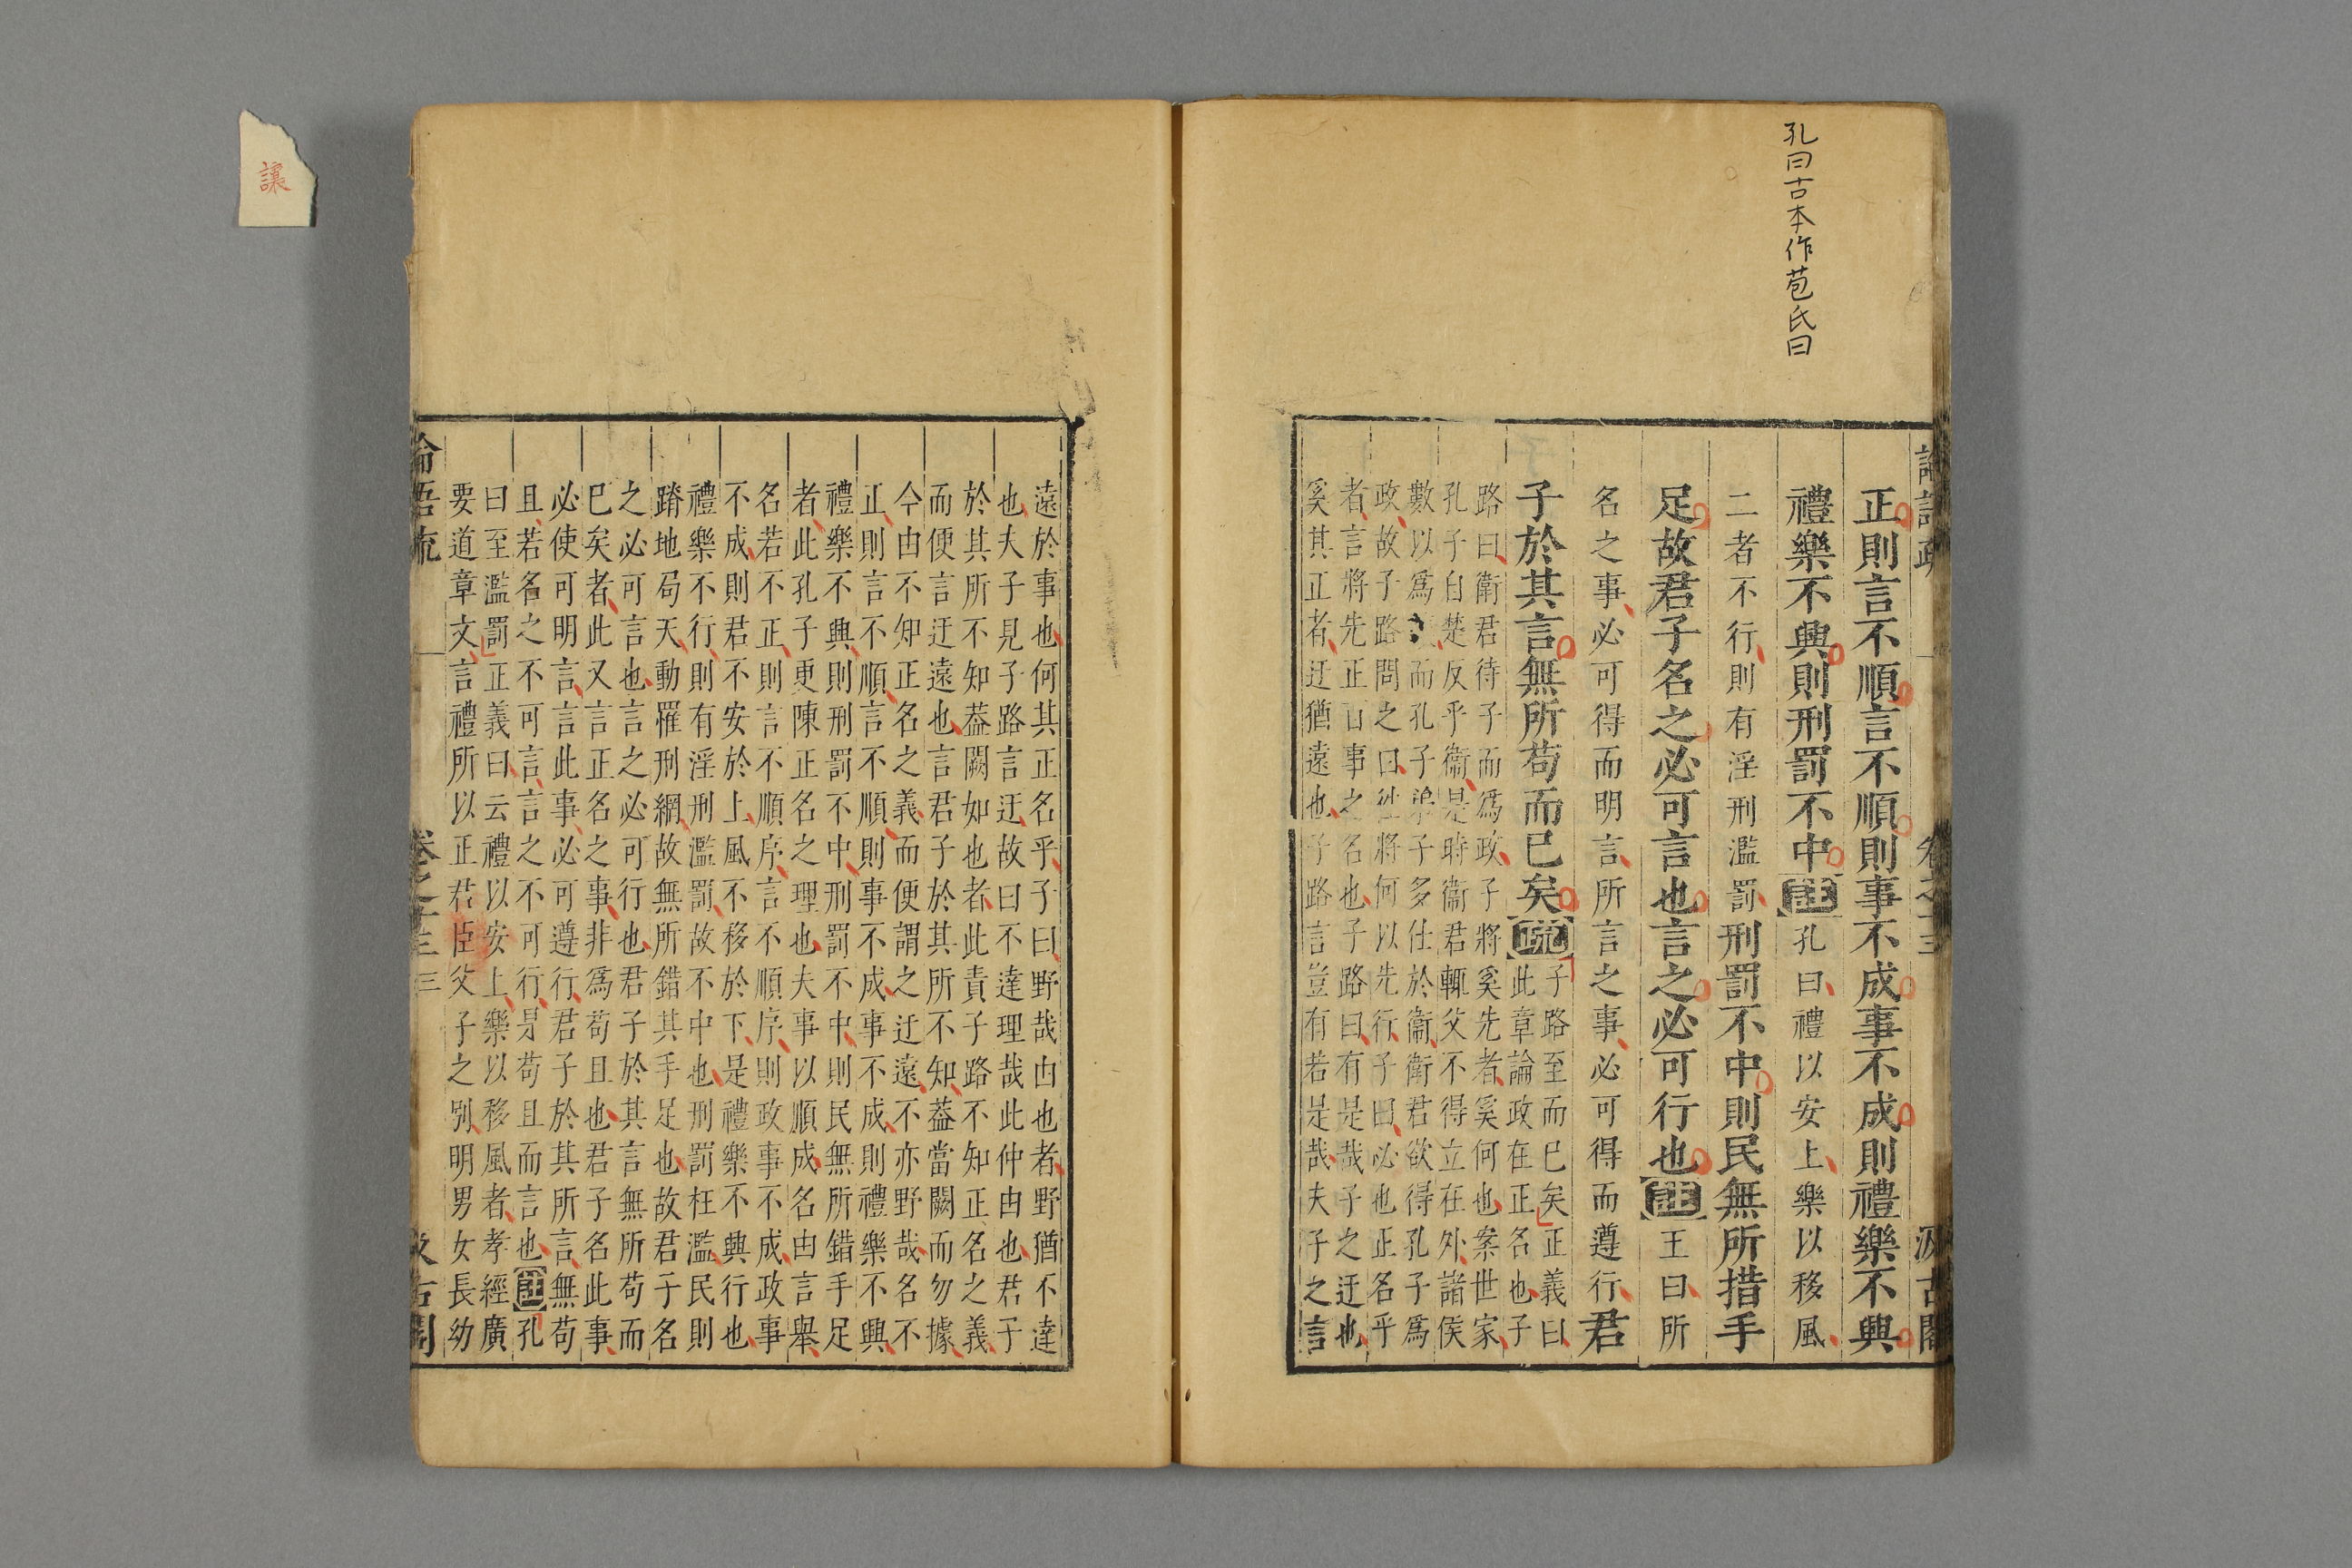 孔曰古本作苞氏曰
正則言不順言不順則事不成事不成則禮樂不興
禮樂不興則刑罰不中註孔曰禮以安上樂以移風
二者不行則有淫刑濫罰刑罰不中則民無所措手
足故君子名之必可言也言之必可行也註王曰所
名之事必可得而明言所言之事必可得而遵行君
子於其言無所苟而已矣疏
子路至而已矣正義曰
此章論政在正名也子
路曰衛君待子而爲政子將奚先者奚何也案世家
孔子自楚反乎衛是時衛君輒父不得立在外諸侯
數以爲而孔子弟子多仕於衛衛君欲得孔子爲
政故子路問之曰往將何以先行子曰必也正名乎
者言將先正百事之名也子路曰有是哉子之迂也
奚其正者迂猶遠也子路言豈有若是哉夫子之言
遠於事也何其正名乎子曰野哉由也者野猶不達
也夫子見子路言迂故曰不達理哉此仲由也君子
於其所不知蓋闕如也者此責子路不知正名之義
而便言迂遠也言君子於其所不知蓋當闕而勿據
今由不知正名之義而便謂之迂遠不亦野哉名不
正則言不順言不順則事不成事不成則禮樂不興
禮樂不興則刑罰不中刑罰不中則民無所錯手足
者此孔子更陳正名之理也夫事以順成名由言舉
名若不正則言不順序言不順序則政事不成政事
不成則君不安於上風不移於下是禮樂不興行也
禮樂不行則有淫刑濫罰故不中也刑罰枉濫民則
蹐地局天動罹刑網故無所錯其手足也故君子名
之必可言也言之必可行也君子於其言無所苟而
已矣者此又言正名之事非爲苟且也君子名此事
必使可明言言此事必可遵行君子於其所言無苟
且若名之不可言言之不可行是苟且而言也註孔
曰至濫罰正義曰云禮以安上樂以移風者孝經廣
要道章文言禮所以正君臣父子之別明男女長幼
卷之十三
三
讓